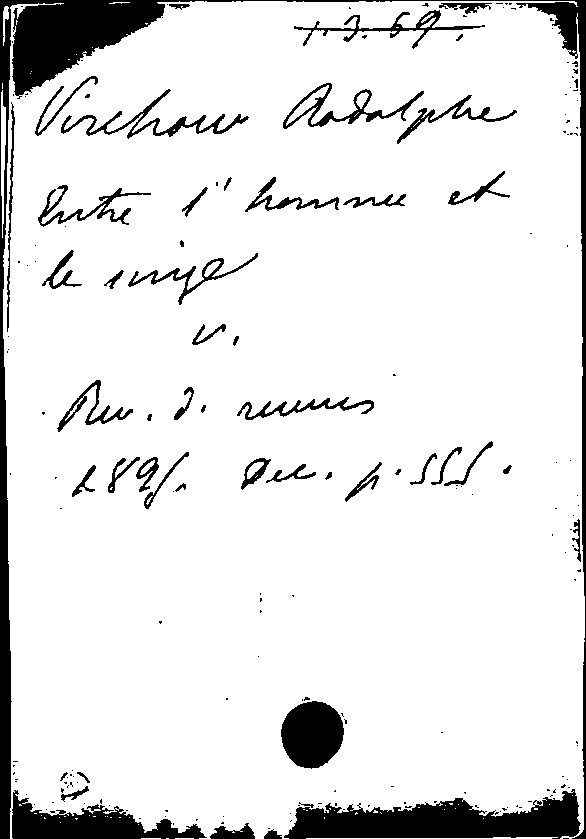 1.3.69.
Virchow Rodolphe
Entre l'homme et
le singe
v.
Rev. d. revues
1895. Dec. p. 555.